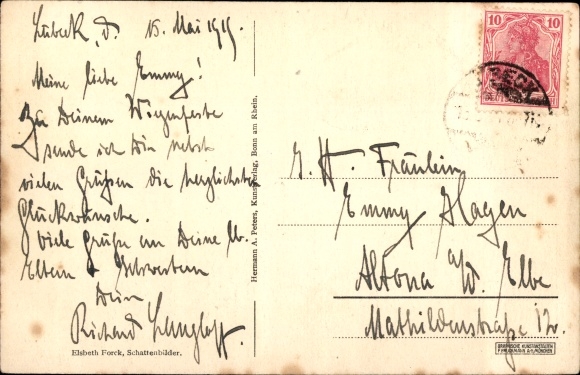 Lübeck, d. 15. Mai 1919.
Meine liebe Emmy!
Zu Deinem Wiegenfeste
sende ich Dir nebst
vielen Grüßen die herzlichsten
Glückwünsche.
Viele Grüße an Deine lb.
Eltern + Schwestern
Dein
Richard
Elsbeth Forck, Schattenbilder.
Hermann A. Peters, Kunstverlag, Bonn am Rhein.
10 10
Fräulein
Emmy Hagen
Altona a/d. Elbe
Mathildenstraße 12.
GRAPHISCHE KUNSTANSTALTEN